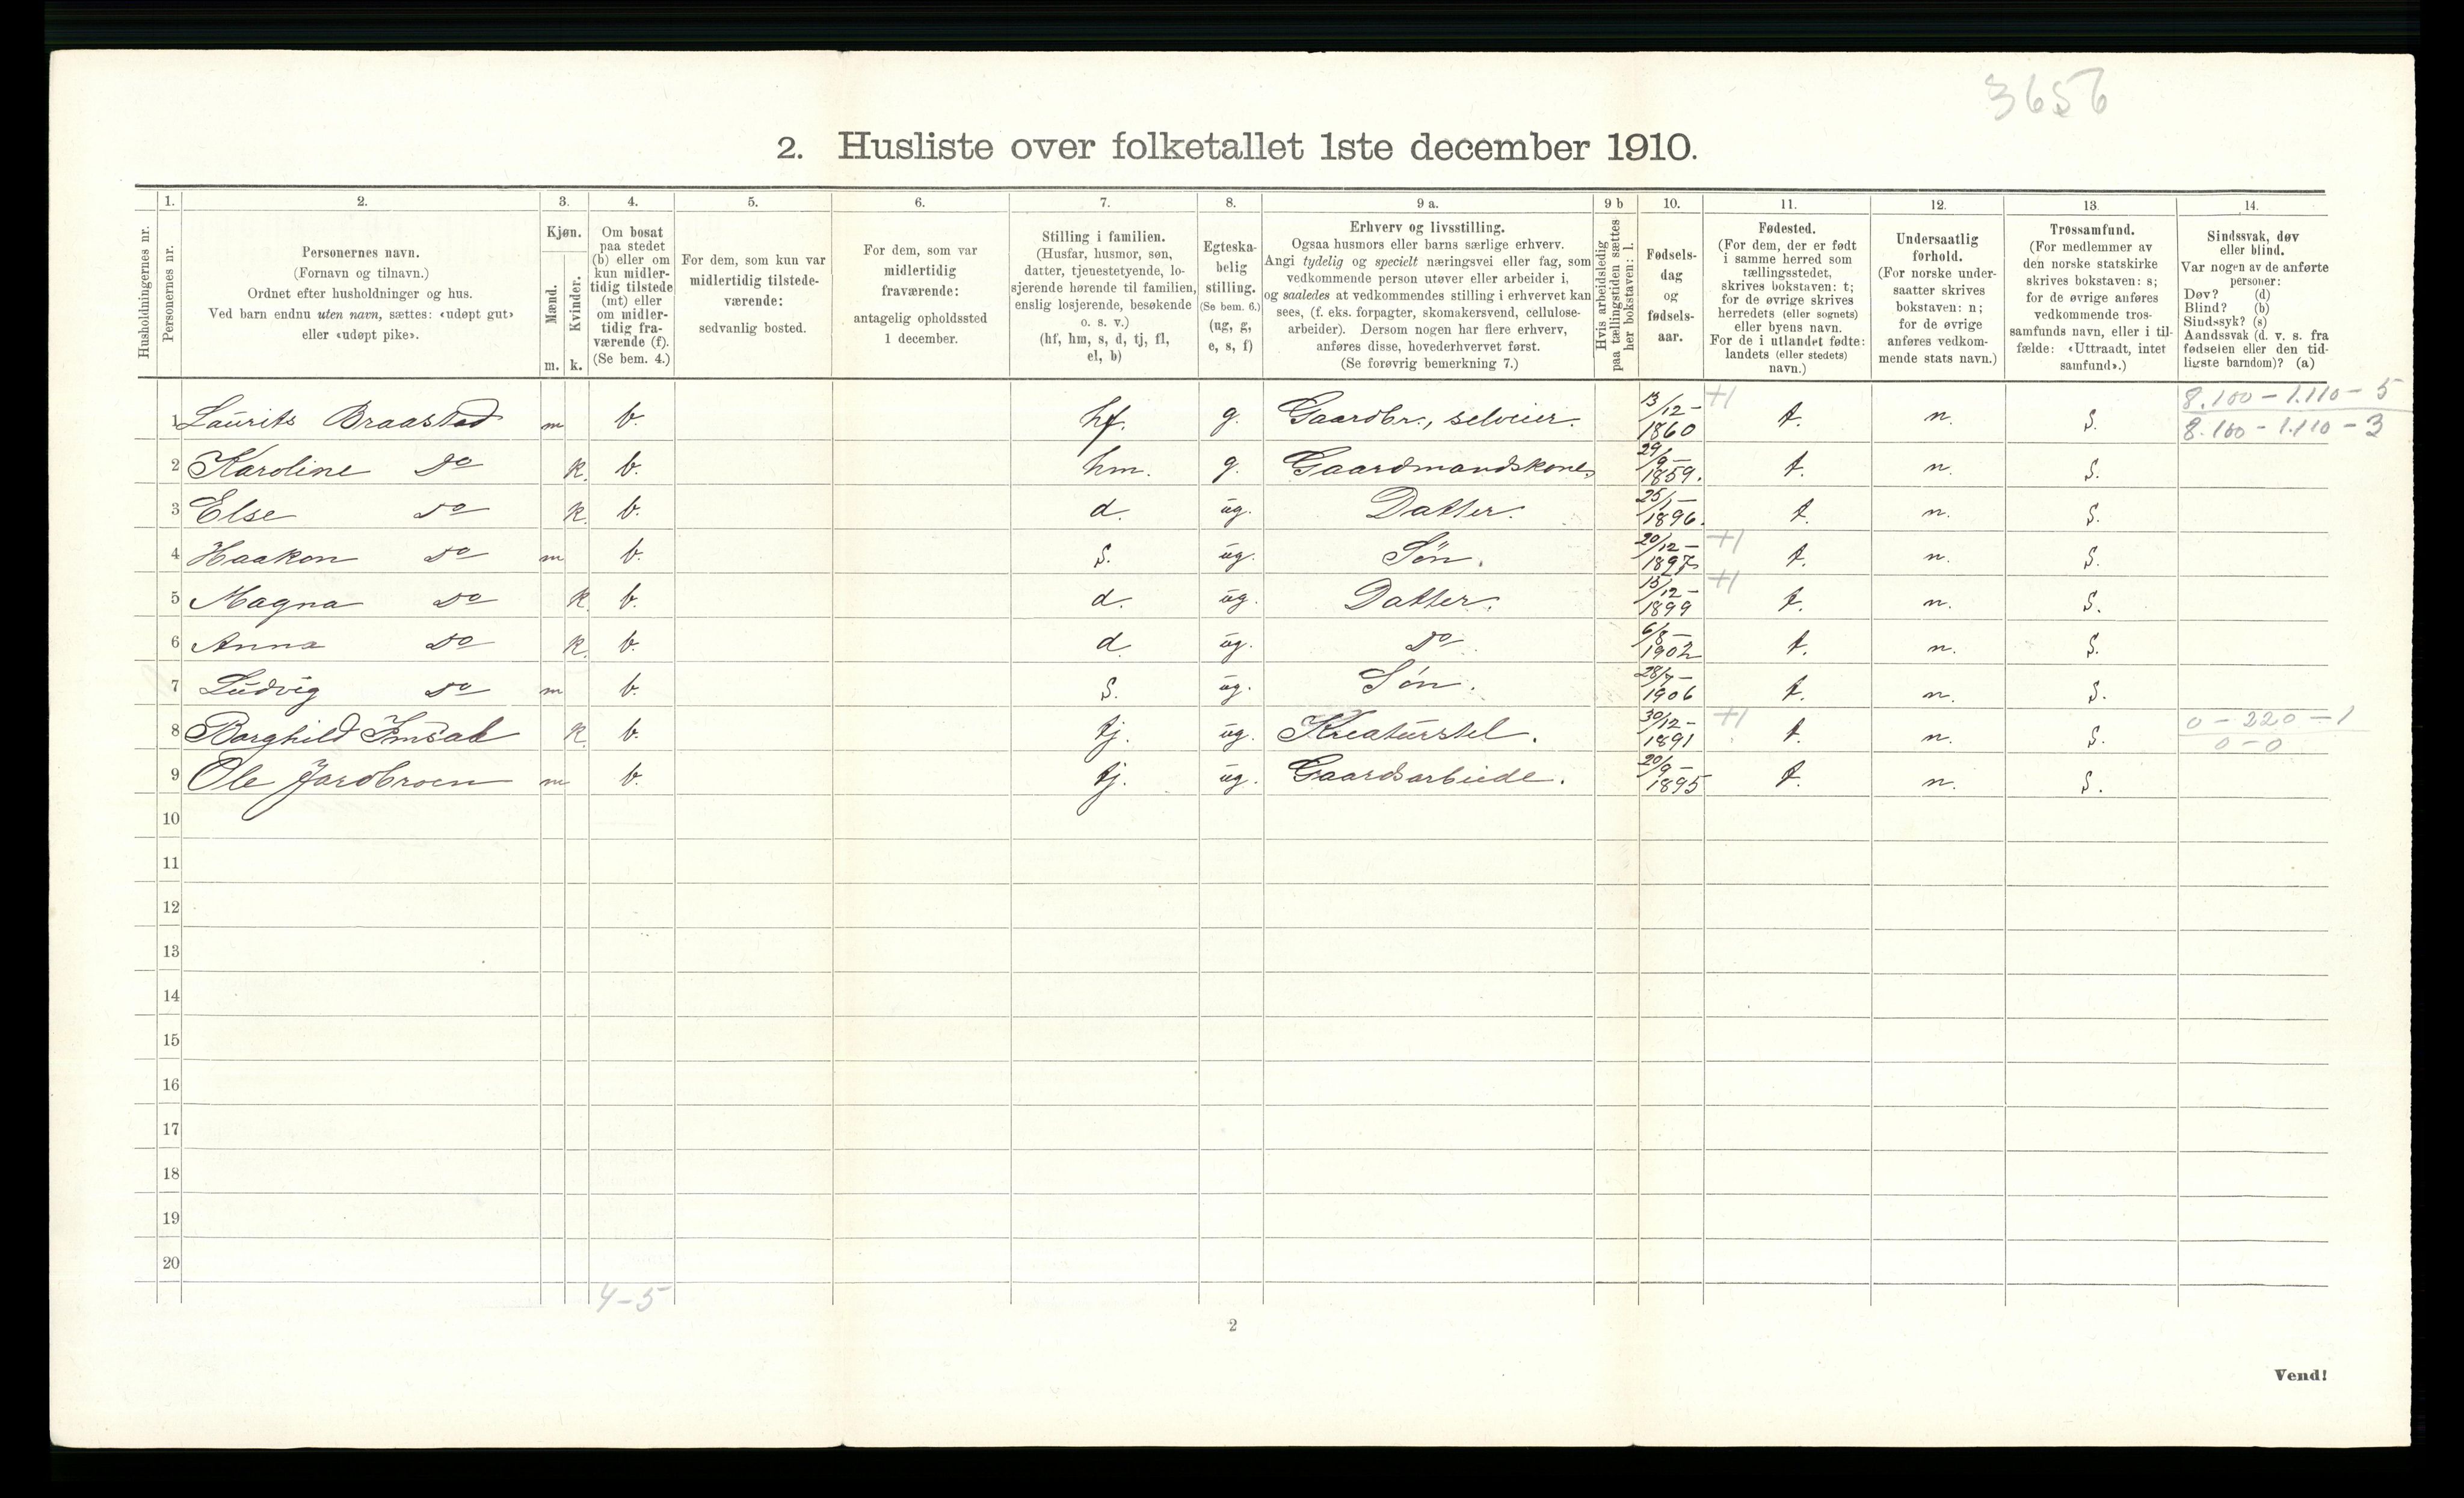 3656
2. Husliste over folketallet 1ste december 1910.
Husholdningernes nr.
1.
Personernes nr.
2.
Personernes navn.
(Fornavn og tilnavn.)
Ordnet efter husholdninger og hus.
Ved barn endnu uten navn, sættes: «udøpt gut»
eller «udøpt pike».
3.
Kjøn.
Mænd.
Kvinder.
m. k.
4.
Om bosat
paa stedet
(b) eller om
kun midler-
tidig tilstede
(mt) eller
om midler-
tidig fra-
værende (f).
(Se bem. 4.)
5.
For dem, som kun var
midlertidig tilstede-
værende:
sedvanlig bosted.
6.
For dem, som var
midlertidig
fraværende:
antagelig opholdssted
1 december.
7.
Stilling i familien.
(Husfar, husmor, søn,
datter, tjenestetyende, lo-
sjerende hørende til familien,
enslig losjerende, besøkende
o. s. v.)
(hf, hm, s, d, tj, fl,
el, b)
8.
Egteska-
belig
stilling.
(Se bem. 6.)
(ug, g,
e, s, f)
9 a.
Erhverv og livsstilling.
Ogsaa husmors eller barns særlige erhverv.
Angi tydelig og specielt næringsvei eller fag, som
vedkommende person utøver eller arbeider i,
og saaledes at vedkommendes stilling i erhvervet kan
sees, (f. eks. forpagter, skomakersvend, cellulose-
arbeider). Dersom nogen har flere erhverv,
anføres disse, hovederhvervet først.
(Se forøvrig bemerkning 7.)
9 b
Hvis arbeidsledig
paa tællingstiden sættes
her bokstaven: l.
10.
Fødsels-
dag
og
fødsels-
aar.
11.
Fødested.
(For dem, der er født
i samme herred som
tællingsstedet,
skrives bokstaven: t;
for de øvrige skrives
herredets (eller sognets)
eller byens navn.
For de i utlandet fødte:
landets (eller stedets)
navn.)
12.
Undersaatlig
forhold.
(For norske under-
saatter skrives
bokstaven: n;
for de øvrige
anføres vedkom-
mende stats navn.)
13.
Trossamfund.
(For medlemmer av
den norske statskirke
skrives bokstaven: s;
for de øvrige anføres
vedkommende tros-
samfunds navn, eller i til-
fælde: «Uttraadt, intet
samfund».)
14.
Sindssvak, døv
eller blind.
Var nogen av de anførte
personer:
Døv? (d)
Blind? (b)
Sindssyk? (s)
Aandssvak (d. v. s. fra
fødselen eller den tid-
ligste barndom)? (a)
1 Laurits Braastad m b. hf. g. Gaardbr., selveier. 13/12 - 1860 +1 t. n. S. 8.100 - 1.110 - 5
8.100 - 1.110 - 3
2 Karoline do k. b. hm. g. Gaardmandskone 29/9 - 1859. t. n. S.
3 Else do k. b. d. ug. Datter. 25/1 - 1896. t. n. S.
4 Haakon do m b. S. ug. Søn. 20/12 - 1897 +1 t. n. S.
5 Magna do k. b. d. ug. Datter. 15/12 - 1899 +1 t. n. S.
6 Anna do k. b. d. ug. do 6/8 - 1902 t. n. S.
7 Ludvig do m b. S. ug. Søn. 28/7 - 1906 t. n. S.
8 Borghild k. b. tj. ug. Kreaturstel. 30/12 - 1891 +1 t. n. S. 0 - 220 - 1
0 - 0
9 Ole m b. tj. ug. Gaardsarbeide. 20/9 - 1895 t. n. S.
10
11
12
13
14
15
16
17
18
19
20
4-5
2
Vend!